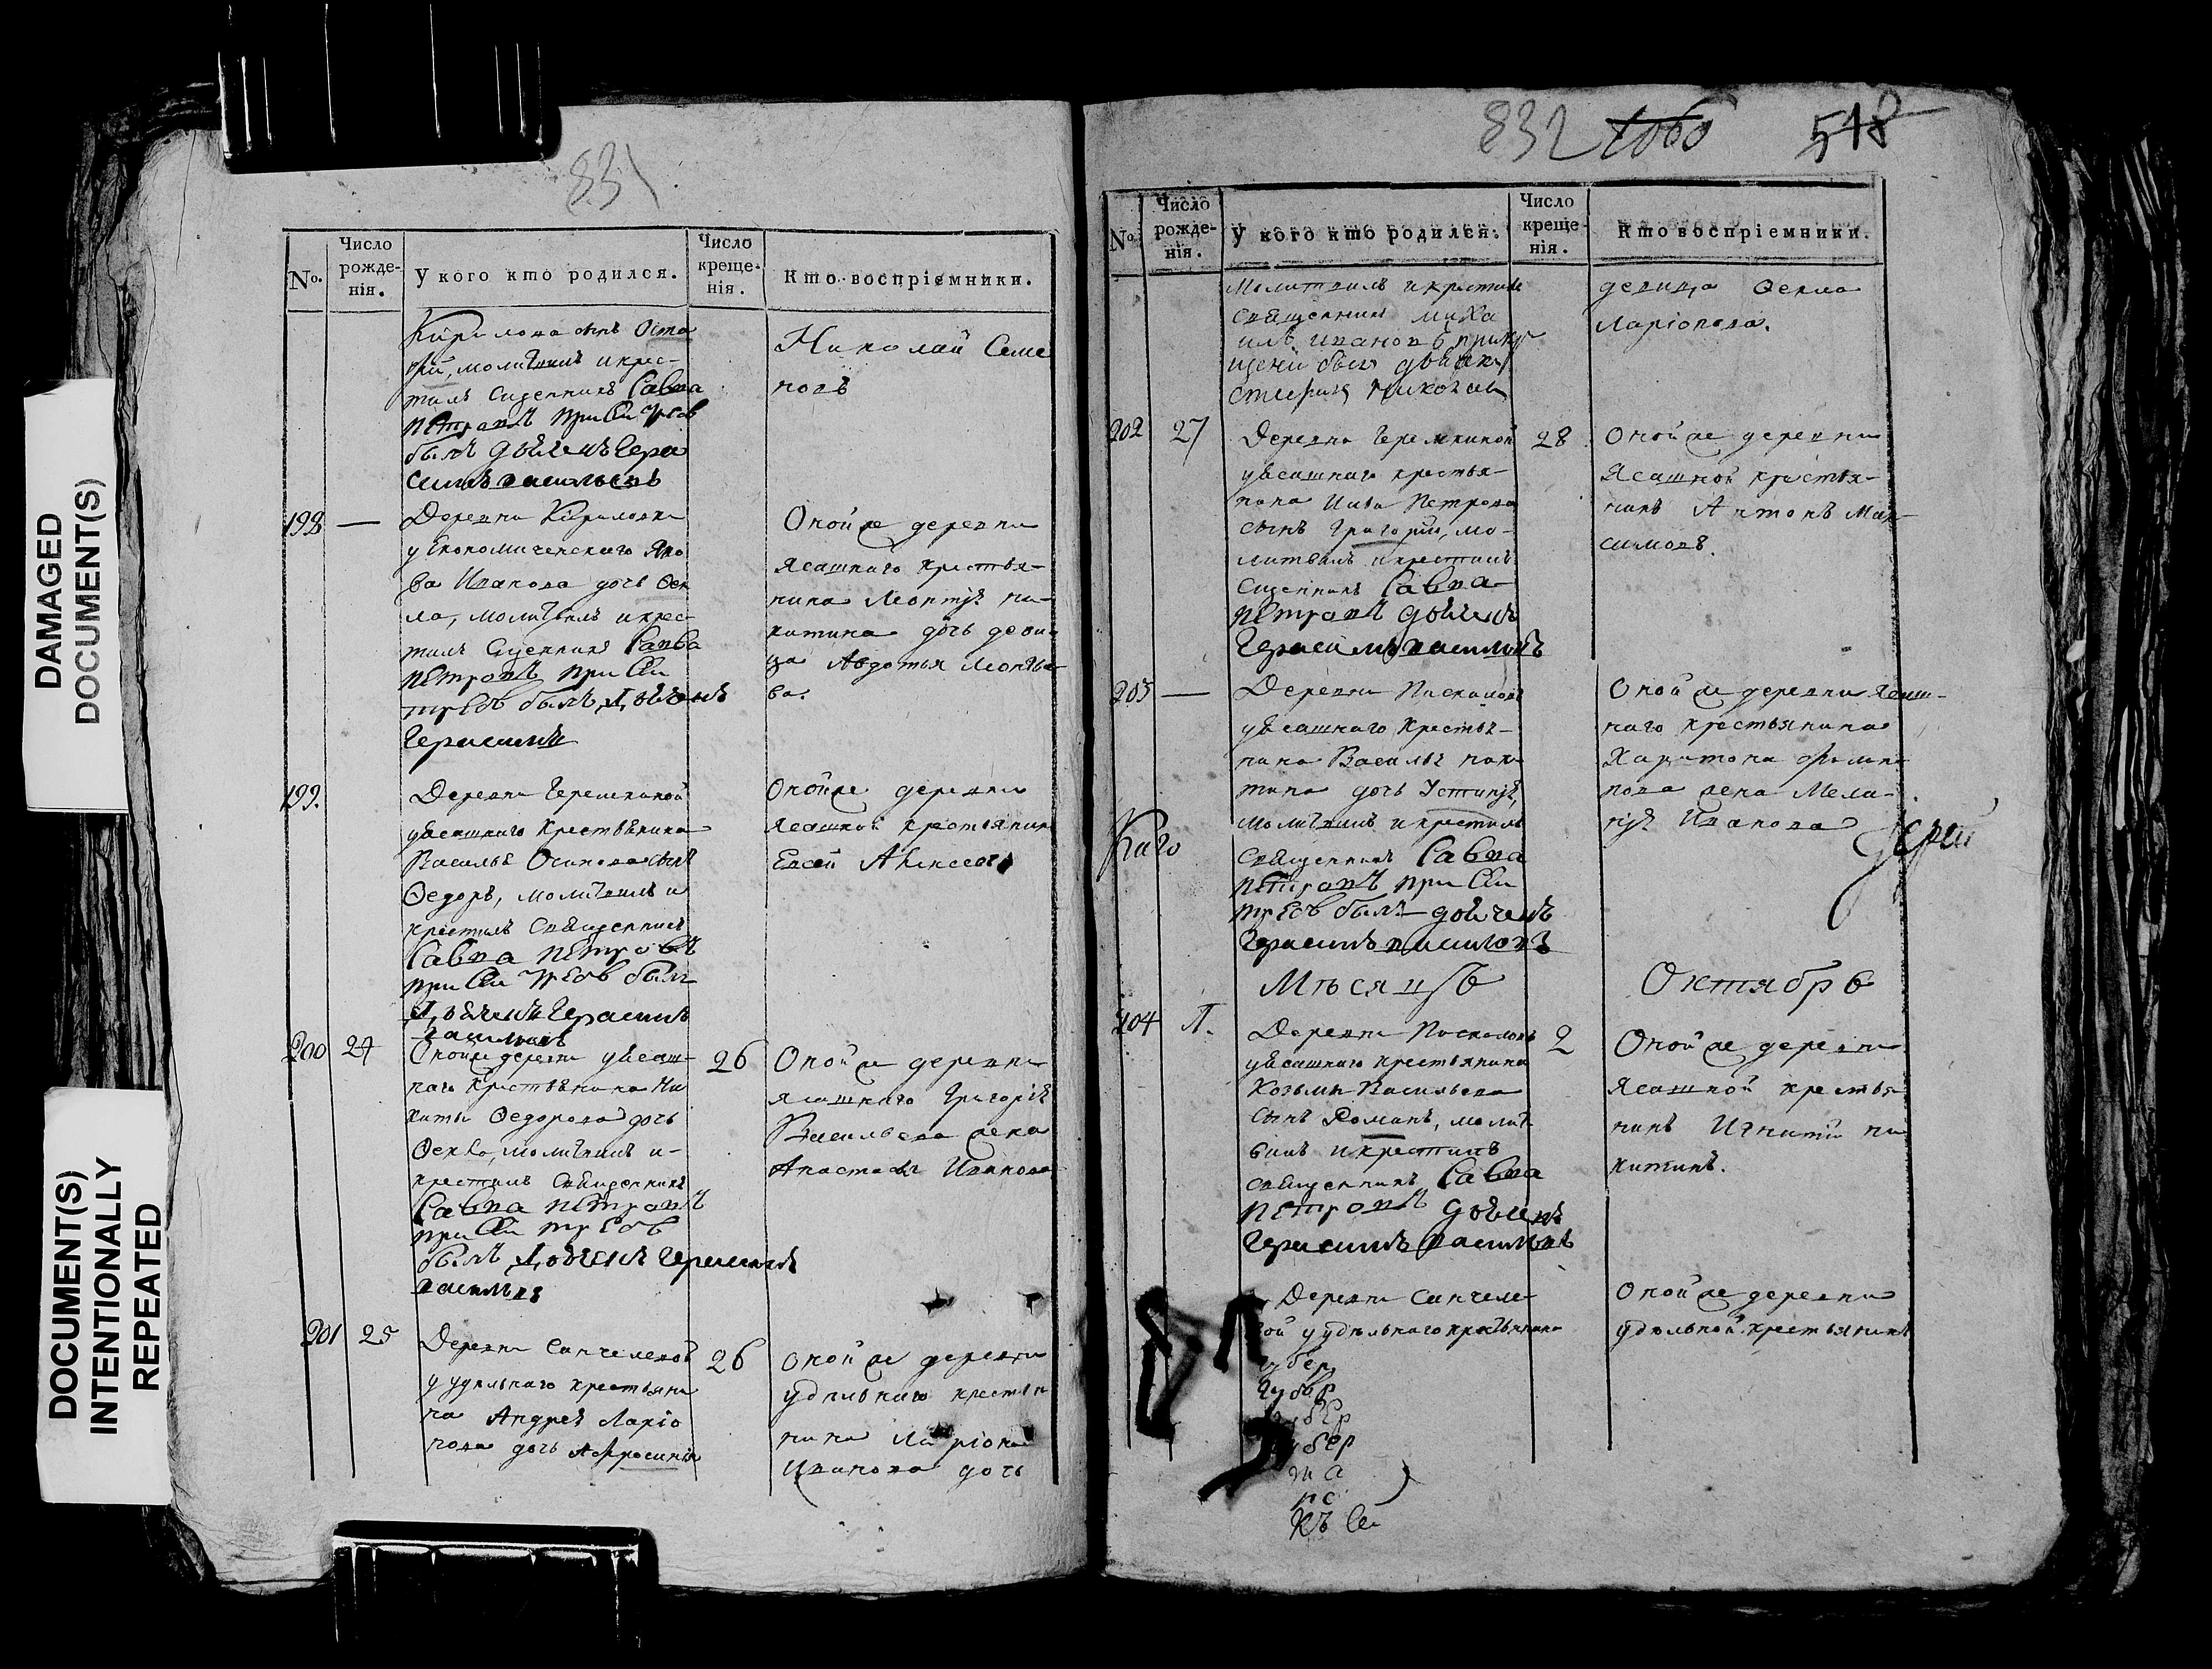 DAMAGED
DOCUMENT(S)
DOCUMENT(S)
INTENTIONALLY
REPEATED
831
№.
Число рожде-нія.
У кого кто родился.
Число креще-нія.
Кто воспріемники.
Кирилова сынъ Оста
фій, молитвилъ и крес-
тилъ Сщенникъ Савва
Петровъ при сей треб
былъ дьячекъ Гера
симъ васильевъ
Николай Семе
новъ
198 —
Деревни Кириловки
у Економическаго Яко
ва Иванова дочь Оек
ла, молитвилъ и крес
тилъ Сщенникъ Савва
Петровъ при сей
требѣ былъ дьячекъ
Герасимъ
Оной же деревни
ясашнаго крестья-
нина Леонтія ни-
китина дочь деви-
ца Авдотья Леонтье-
ва.
199.
Деревни Черемкиной
у ясашнаго крестьянина
Василья Осипова сынъ
Ѳедоръ, молитвилъ и
крестилъ Священникъ
Савва Петровъ
при сей требѣ былъ
Дьячекъ Герасимъ
васильевъ
Оной же деревни
ясашной крестьянинъ
Евсей Алексеевъ
200 24
Оной же деревни у ясаш-
наго крестьянина Ни
киты Ѳедорова дочь
Ѳекла, молитвилъ и-
крестилъ Священникъ
Савва Петровъ
при сей требѣ
былъ Дьячекъ Герасимъ
васильевъ
26
Оной же деревни
ясашнаго Григорія
Васильева жена
Анастасія Иванова
201 25
Деревни Санчелеевой
у удельнаго крестьяни
на Андрея Ларіо
нова дочь Афросинія
26
Оной же деревни
удельнаго крестья
нина Ларіона
Иванова дочь
832 1060 518
№
Число рожде-нія.
У кого кто родился.
Число креще-нія.
Кто воспріемники.
Молитвилъ и крестилъ
священникъ Миха
илъ Ивановъ при кре
щеніи былъ дьячекъ
девица Ѳекла
Ларіонова.
202 27
Деревни Черемкиной
у ясашнаго крестья-
нина Петрова
сынъ Григорій, мо-
литвилъ и крестилъ
Сщенникъ Савва
Петровъ дьячекъ
Герасимъ васильевъ
28
Оной же деревни
Ясашной крестья-
нинъ Антонъ Мак-
симовъ.
203 —
Деревни
у ясашнаго крестья-
нина Василья ники
тина дочь Устинія,
молитвилъ и крестилъ
священникъ Савва
Петровъ при сей
требѣ былъ дьячекъ
Герасимъ васильевъ
Оной же деревни ясаш-
наго крестьянина
Харитона
жена Мела-
нія Иванова
Іерей
Мѣсяцъ
Октябрь
204 1.
Деревни
у ясашнаго крестьянина
Козьмы Васильева
сынъ Романъ, молит
вилъ и крестилъ
священникъ Савва
Петровъ дьячекъ
Герасимъ васильевъ
2
Оной же деревни
Ясашной крестья
нинъ Игнатій ни
китинъ.
Деревни Санчеле-
вой у удѣльнаго крестьянина
Оной же деревни
удѣльной крестьянинъ
губер
губер
губер
губер
на
рс
къ се